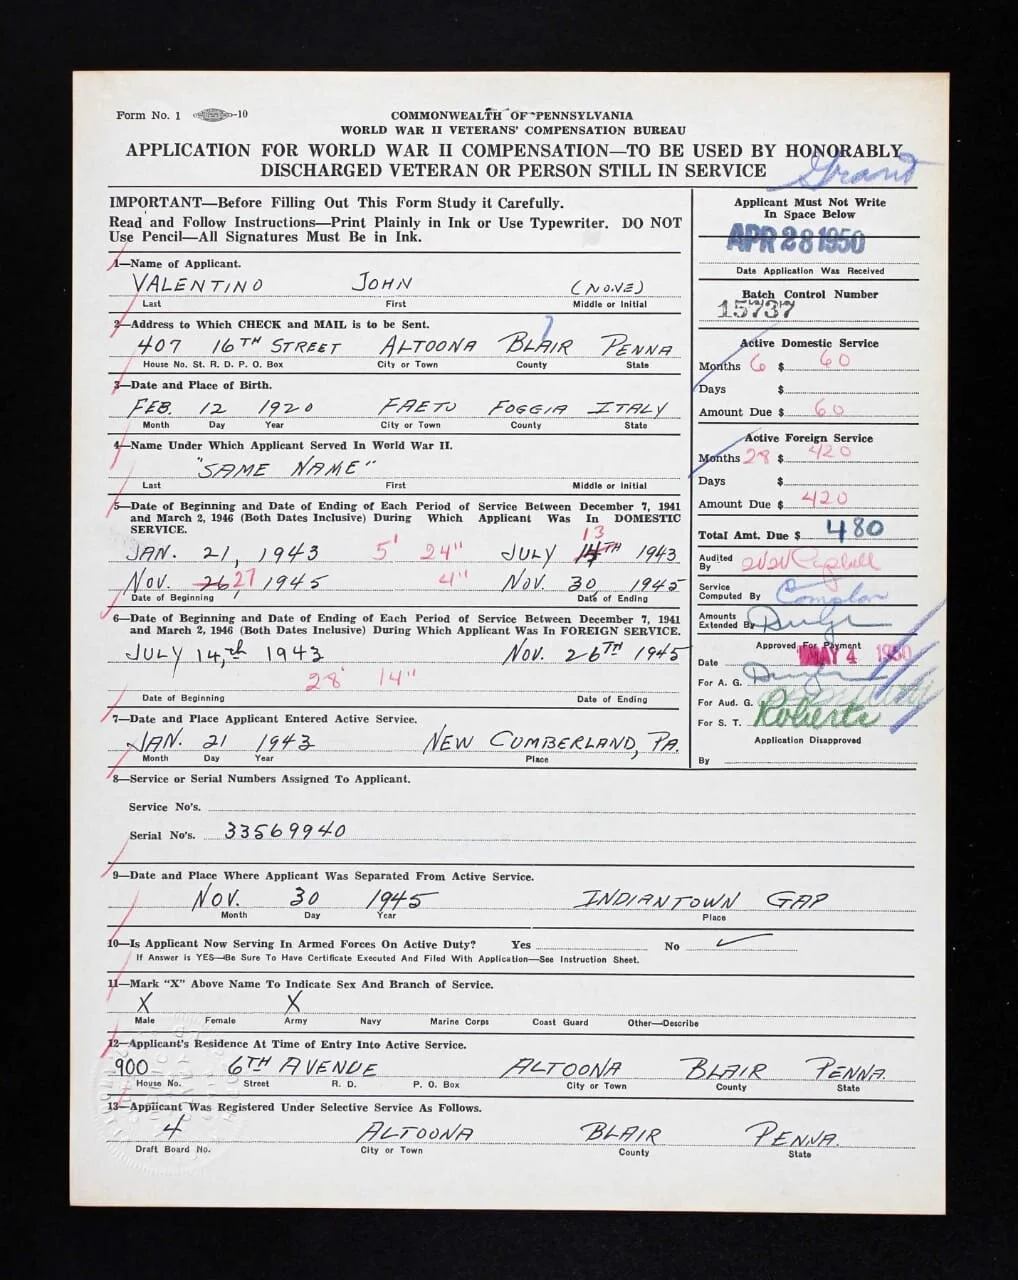 Form No. 1 -10
COMMONWEALTH OF PENNSYLVANIA
WORLD WAR II VETERANS' COMPENSATION BUREAU
APPLICATION FOR WORLD WAR II COMPENSATION—TO BE USED BY HONORABLY
DISCHARGED VETERAN OR PERSON STILL IN SERVICE
IMPORTANT—Before Filling Out This Form Study it Carefully.
Read and Follow Instructions—Print Plainly in Ink or Use Typewriter. DO NOT
Use Pencil—All Signatures Must Be in Ink.
1—Name of Applicant.
VALENTINO JOHN (NONE)
Last First Middle or Initial
2—Address to Which CHECK and MAIL is to be Sent.
407 16TH STREET ALTOONA BLAIR PENNA
House No. St. R. D. P. O. Box City or Town County State
3—Date and Place of Birth.
FEB. 12 1920 FAETO FOGGIA ITALY
Month Day Year City or Town County State
4—Name Under Which Applicant Served In World War II.
"SAME NAME"
Last First Middle or Initial
5—Date of Beginning and Date of Ending of Each Period of Service Between December 7, 1941
and March 2, 1946 (Both Dates Inclusive) During Which Applicant Was In DOMESTIC
SERVICE.
13
JAN. 21, 1943 5' 24" JULY 14TH 1943
NOV. 26 27, 1945 4" NOV. 30, 1945
Date of Beginning Date of Ending
6—Date of Beginning and Date of Ending of Each Period of Service Between December 7, 1941
and March 2, 1946 (Both Dates Inclusive) During Which Applicant Was In FOREIGN SERVICE.
JULY 14,th 1943 NOV. 26TH 1945
28' 14"
Date of Beginning Date of Ending
7—Date and Place Applicant Entered Active Service.
JAN. 21 1943 NEW CUMBERLAND, PA.
Month Day Year Place
Grant
Applicant Must Not Write
In Space Below
APR 28 1950
Date Application Was Received
Batch Control Number
15737
Active Domestic Service
Months 6 $ 60
Days $
Amount Due $ 60
Active Foreign Service
Months 28 $ 420
Days $
Amount Due $ 420
Total Amt. Due $ 480
Audited
By
Service
Computed By Compton
Amounts
Extended By
Approved For Payment
Date MAY 4 1950
For A. G.
For Aud. G.
For S. T. Roberts
Application Disapproved
By
8—Service or Serial Numbers Assigned To Applicant.
Service No's.
Serial No's. 33569940
9—Date and Place Where Applicant Was Separated From Active Service.
NOV. 30 1945 INDIANTOWN GAP
Month Day Year Place
10—Is Applicant Now Serving In Armed Forces On Active Duty? Yes No ✓
If Answer is YES—Be Sure To Have Certificate Executed And Filed With Application—See Instruction Sheet.
11—Mark "X" Above Name To Indicate Sex And Branch of Service.
X X
Male Female Army Navy Marine Corps Coast Guard Other—Describe
12—Applicant's Residence At Time of Entry Into Active Service.
900 6TH AVENUE ALTOONA BLAIR PENNA.
House No. Street R. D. P. O. Box City or Town County State
13—Applicant Was Registered Under Selective Service As Follows.
4 ALTOONA BLAIR PENNA.
Draft Board No. City or Town County State